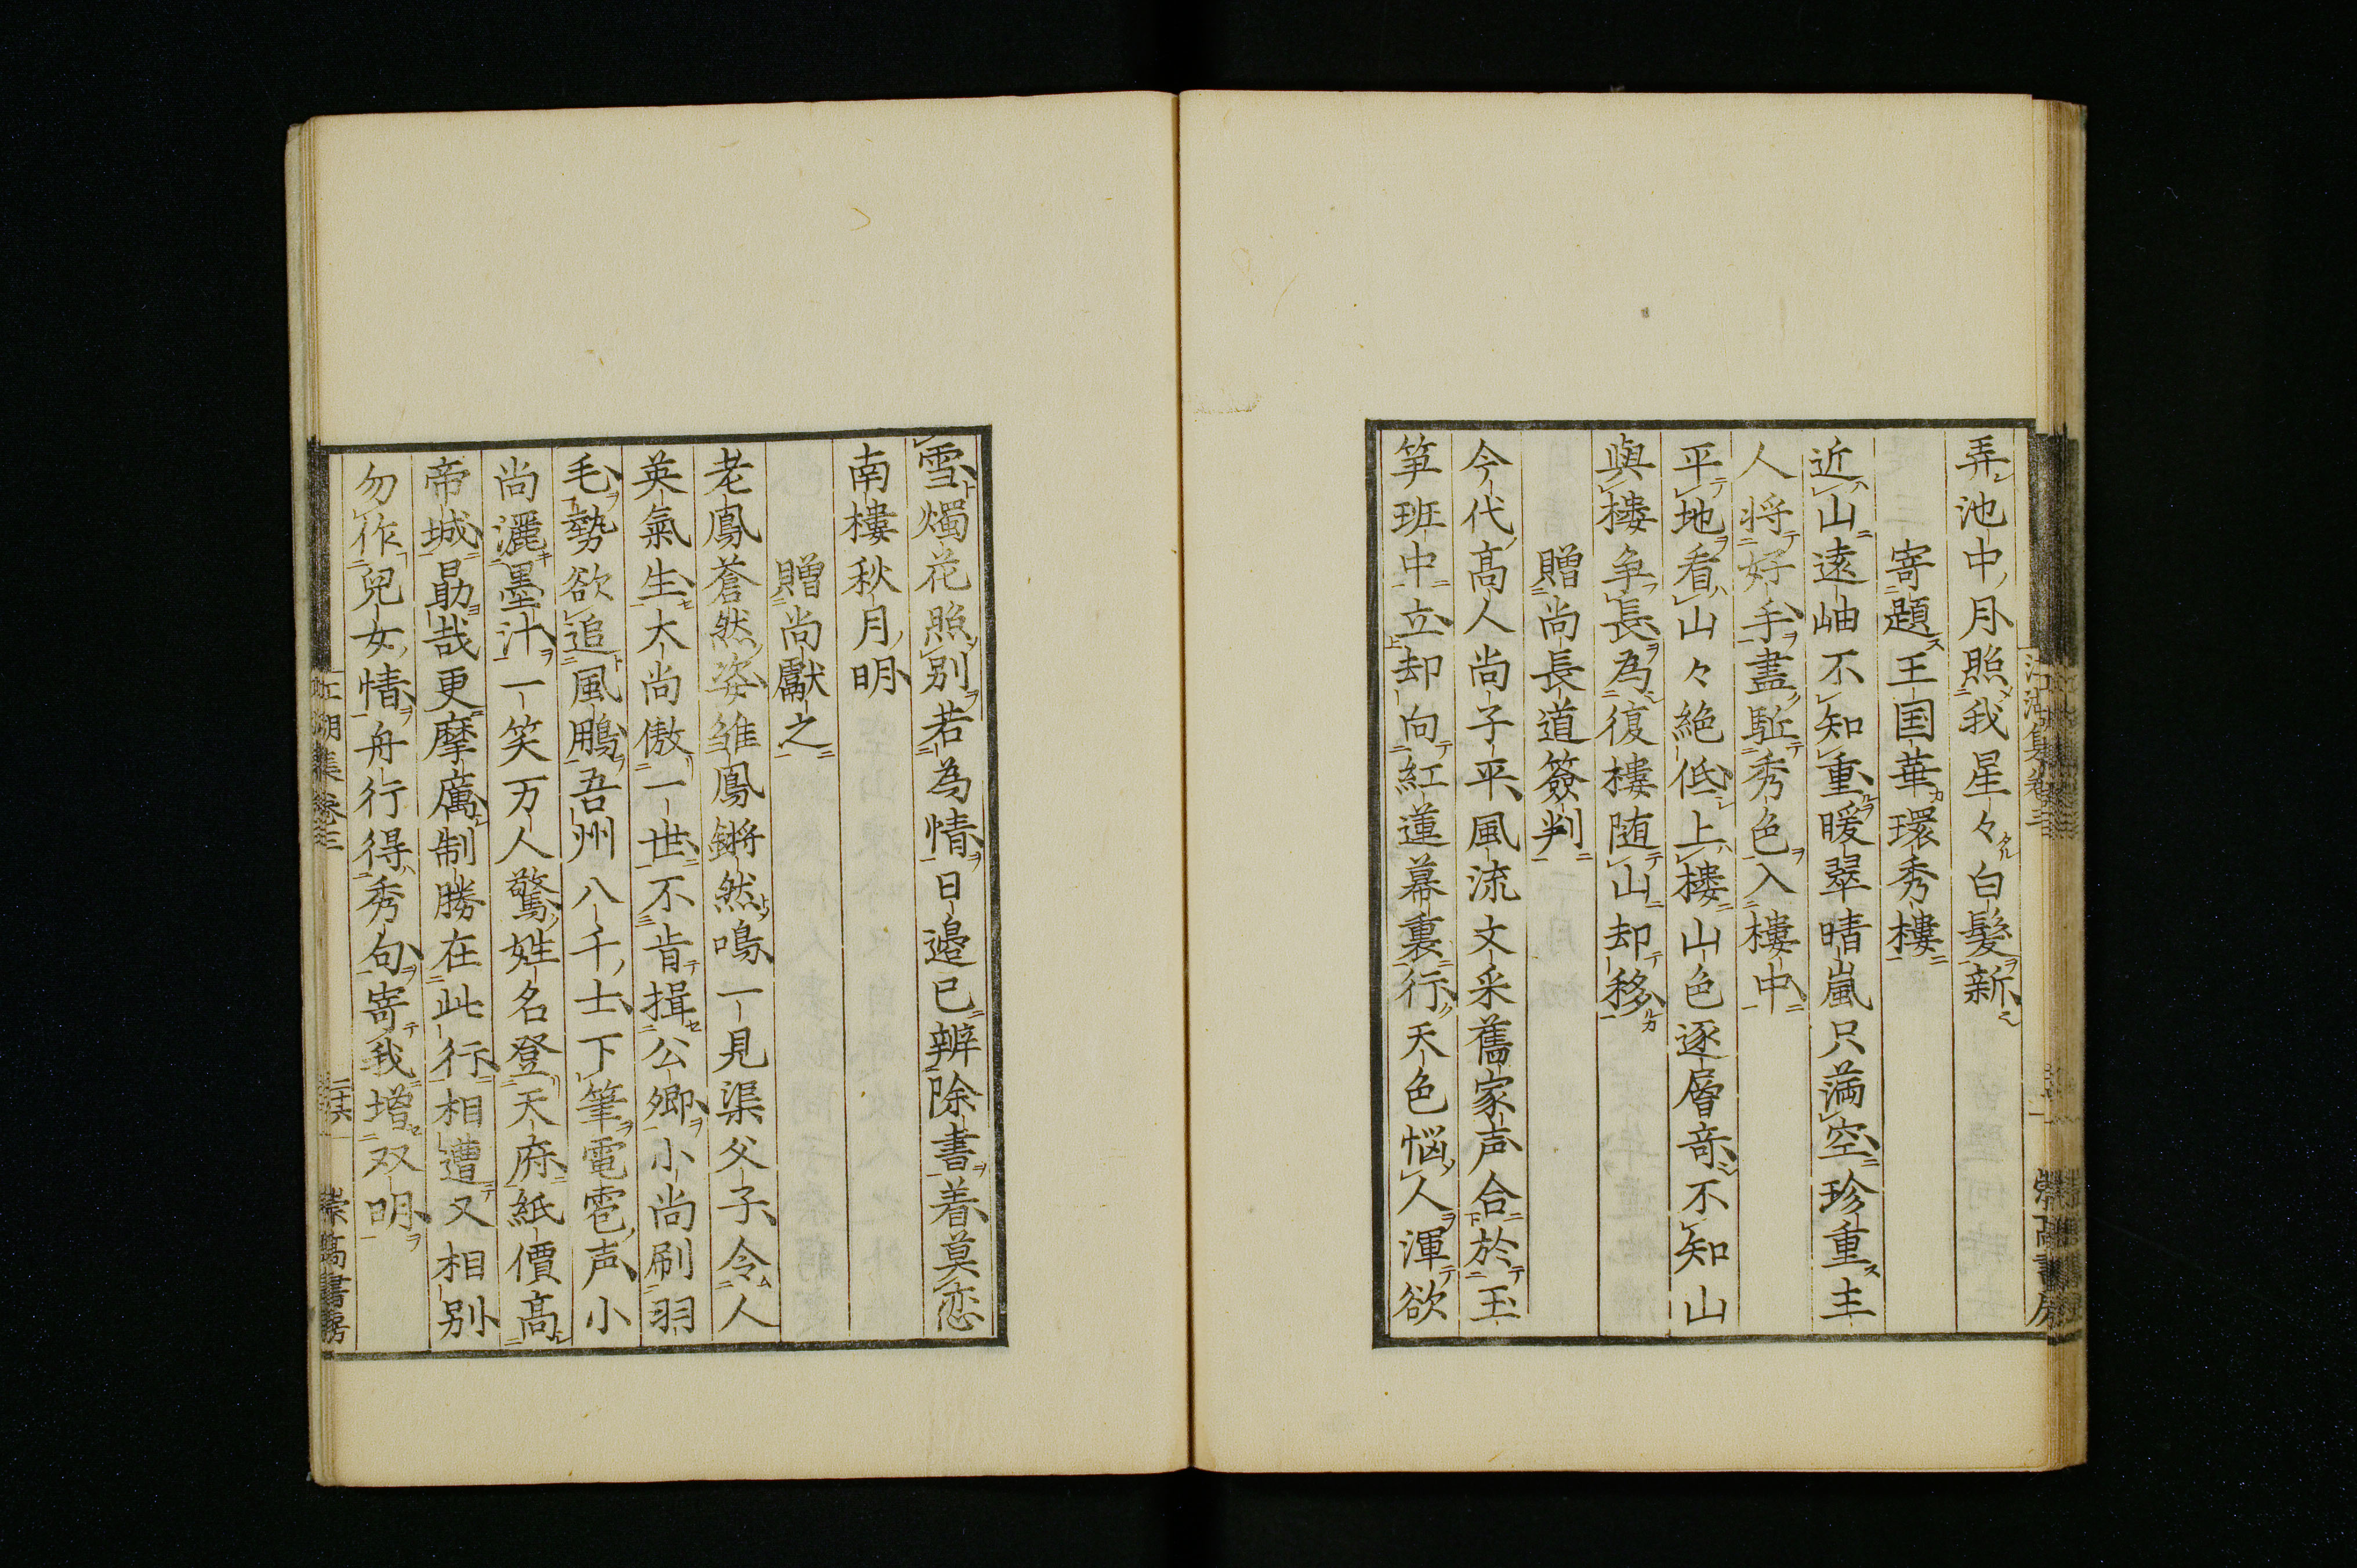 弄池中月照我星々白髮新
寄題王国華環秀樓
近山遠岫不知重暖翠晴嵐只満空珍重主
人将好手盡駈秀色入樓中
平地看山々絶低上樓山色逐層竒不知山
與樓争長為復樓随山却移
贈尚長道簽判
今代髙人尚子平風流文采舊家声合於玉
笋班中立却向紅蓮幕裏行天色悩人渾欲
雪燭花照別若為情日邉已辨除書着莫恋
南樓秋月明
贈尚獻之
老鳳蒼然姿雏鳳鏘然鳴一見渠父子令人
英氣生大尚傲一世不肯揖公卿小尚刷羽
毛勢欲追風鵬吾州八千士下筆電雹声小
尚灑墨汁一笑万人驚姓名登天府紙價髙
帝城勗哉更摩厲制勝在此行相遭又相別
勿作兒女情舟行得秀句寄我增双明
江湖集卷三
二十六
崇高書房